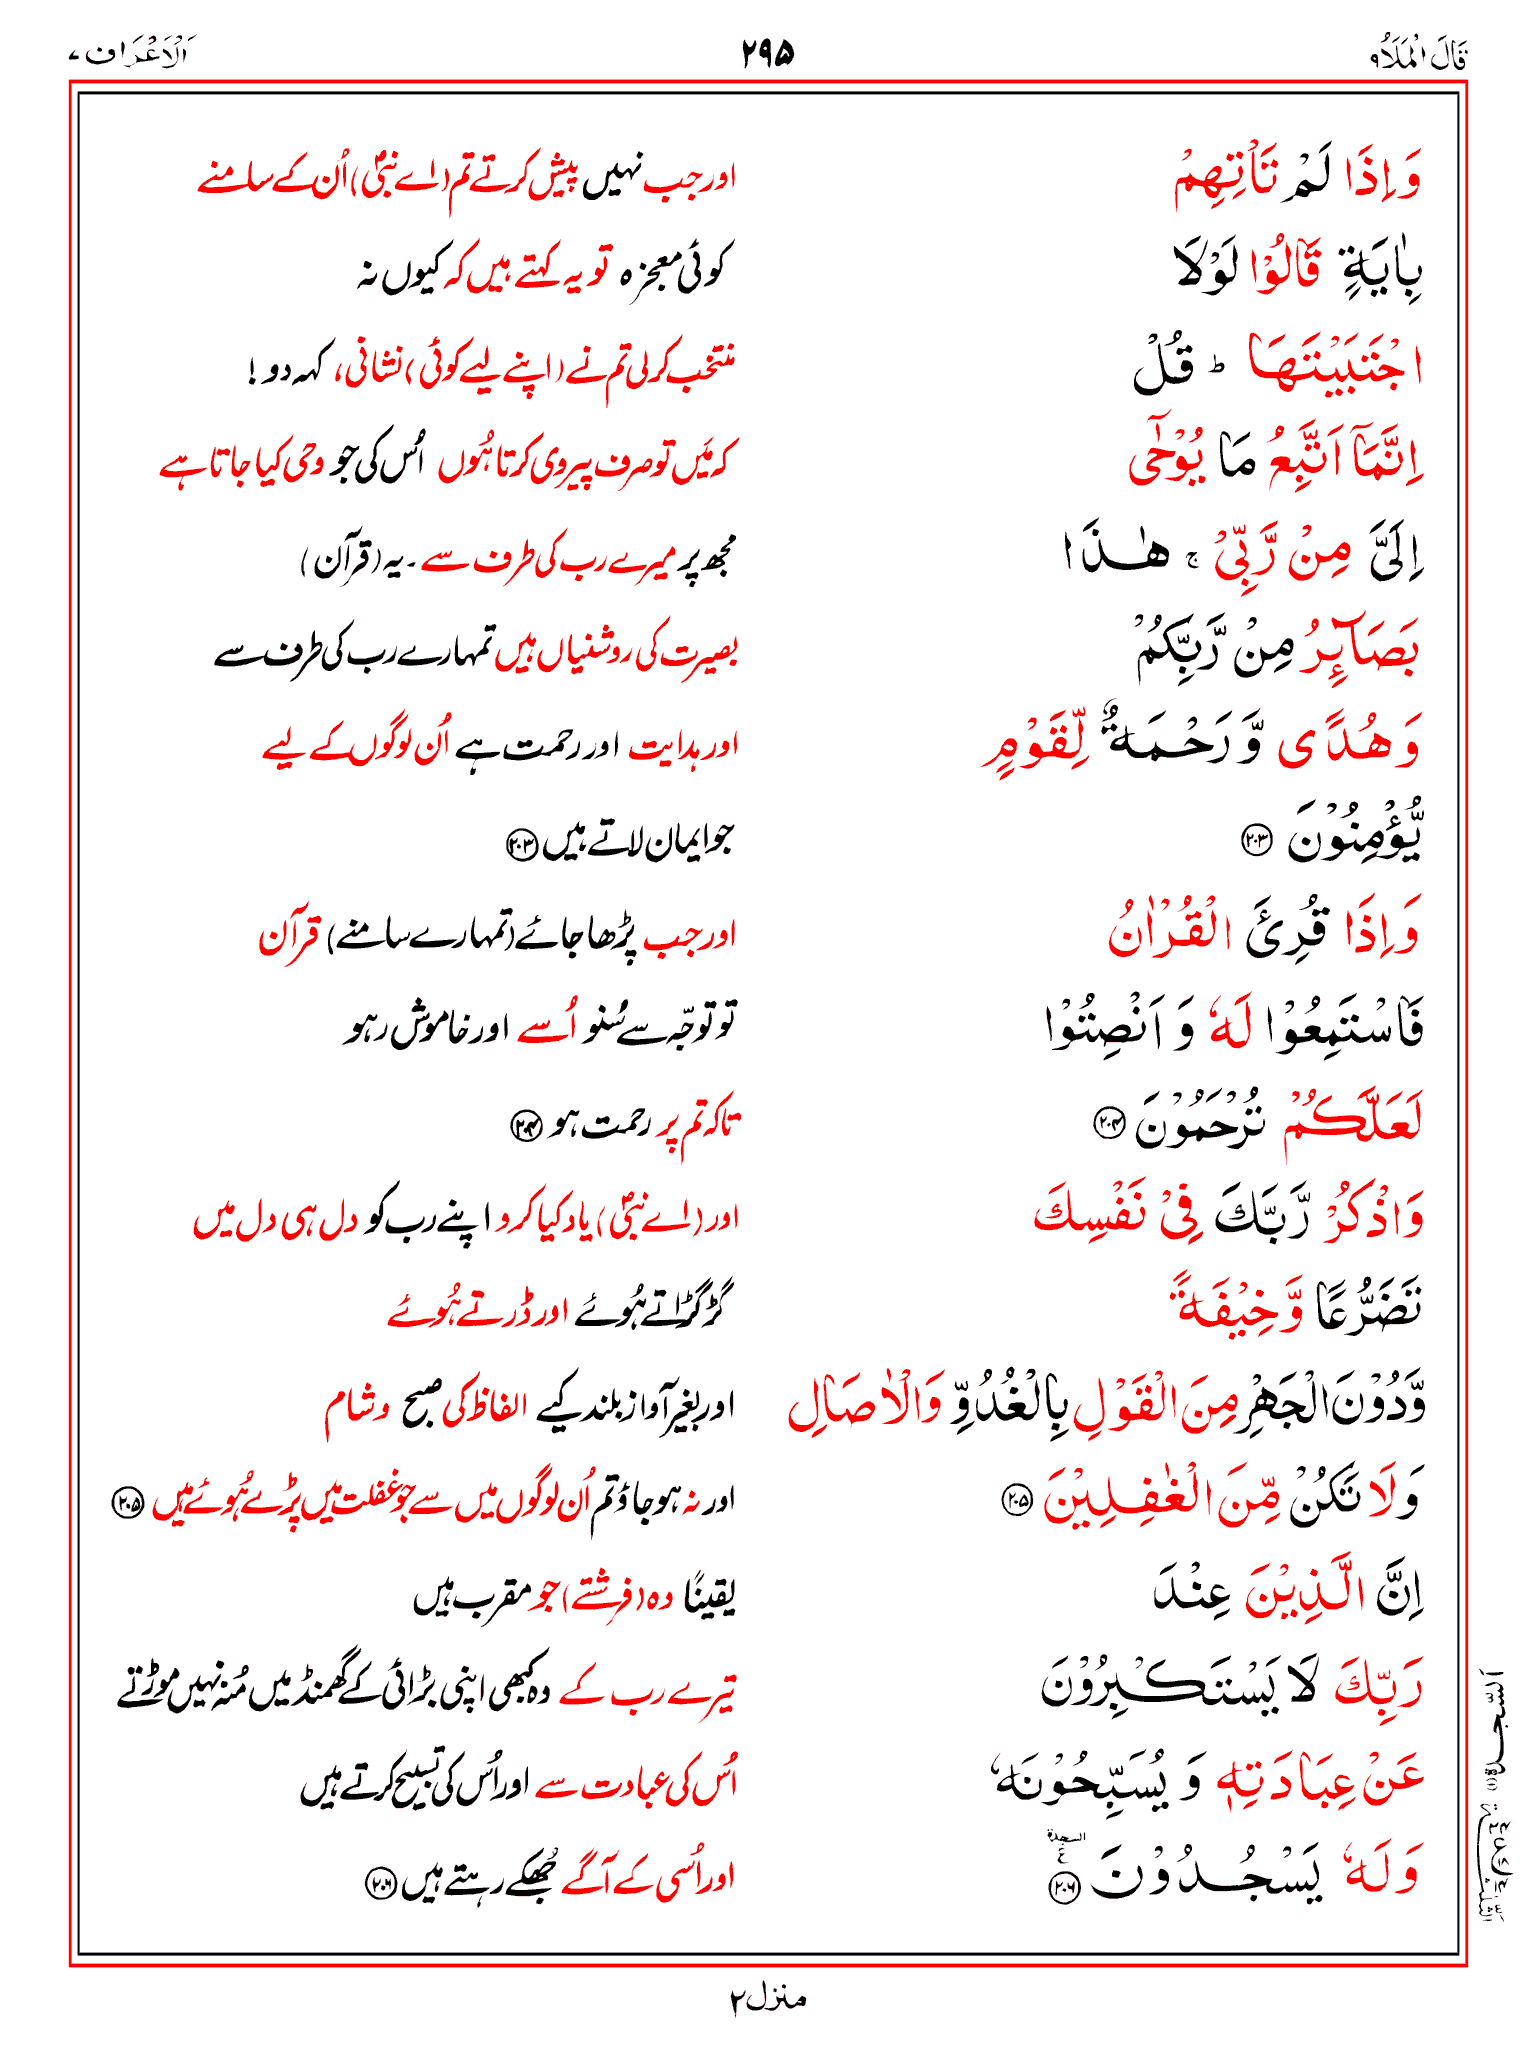 قَالَ الْمَلَاُ ۹
۲۹۵
اَلْاَعْرَاف ۷
وَاِذَا لَمْ تَاْتِهِمْ
اور جب نہیں پیش کرتے تم (اے نبیؐ) اُن کے سامنے
بِاٰيَةٍ قَالُوْا لَوْلَا
کوئی معجزہ تو یہ کہتے ہیں کہ کیوں نہ
اجْتَبَيْتَهَا ؕ قُلْ
منتخب کر لی تم نے (اپنے لیے کوئی) نشانی، کہہ دو!
اِنَّمَاۤ اَتَّبِعُ مَا يُوْحٰۤى
کہ مَیں تو صرف پیروی کرتا ہُوں اُس کی جو وحی کیا جاتا ہے
اِلَىَّ مِنْ رَّبِّىْ ۚ هٰذَا
مجھ پر میرے رب کی طرف سے ۔ یہ (قرآن)
بَصَآئِرُ مِنْ رَّبِّكُمْ
بصیرت کی روشنیاں ہیں تمہارے رب کی طرف سے
وَهُدًى وَّرَحْمَةٌ لِّقَوْمٍ
اور ہدایت اور رحمت ہے اُن لوگوں کے لیے
يُّؤْمِنُوْنَ ۲۰۳
جو ایمان لاتے ہیں ۲۰۳
وَاِذَا قُرِئَ الْقُرْاٰنُ
اور جب پڑھا جائے (تمہارے سامنے) قرآن
فَاسْتَمِعُوْا لَهٗ وَ اَنْصِتُوْا
تو توجّہ سے سُنو اُسے اور خاموش رہو
لَعَلَّكُمْ تُرْحَمُوْنَ ۲۰۴
تاکہ تم پر رحمت ہو ۲۰۴
وَاذْكُرْ رَّبَّكَ فِىْ نَفْسِكَ
اور (اے نبیؐ) یاد کیا کرو اپنے رب کو دل ہی دل میں
تَضَرُّعًا وَّخِيْفَةً
گڑگڑاتے ہُوئے اور ڈرتے ہُوئے
وَّدُوْنَ الْجَهْرِ مِنَ الْقَوْلِ بِالْغُدُوِّ وَالْاٰصَالِ
اور بغیر آواز بلند کیے الفاظ کی صبح وشام
وَلَا تَكُنْ مِّنَ الْغٰفِلِيْنَ ۲۰۵
اور نہ ہو جاؤ تم اُن لوگوں میں سے جو غفلت میں پڑے ہُوئے ہیں ۲۰۵
اِنَّ الَّذِيْنَ عِنْدَ
یقینًا وہ (فرشتے) جو مقرب ہیں
رَبِّكَ لَا يَسْتَكْبِرُوْنَ
تیرے رب کے وہ کبھی اپنی بڑائی کے گھمنڈ میں مُنہ نہیں موڑتے
عَنْ عِبَادَتِهٖ وَ يُسَبِّحُوْنَهٗ
اُس کی عبادت سے اور اُس کی تسبیح کرتے ہیں
وَلَهٗ يَسْجُدُوْنَ ۲۰۶ السجدة
اور اُسی کے آگے جُھکے رہتے ہیں ۲۰۶
منزل ۲